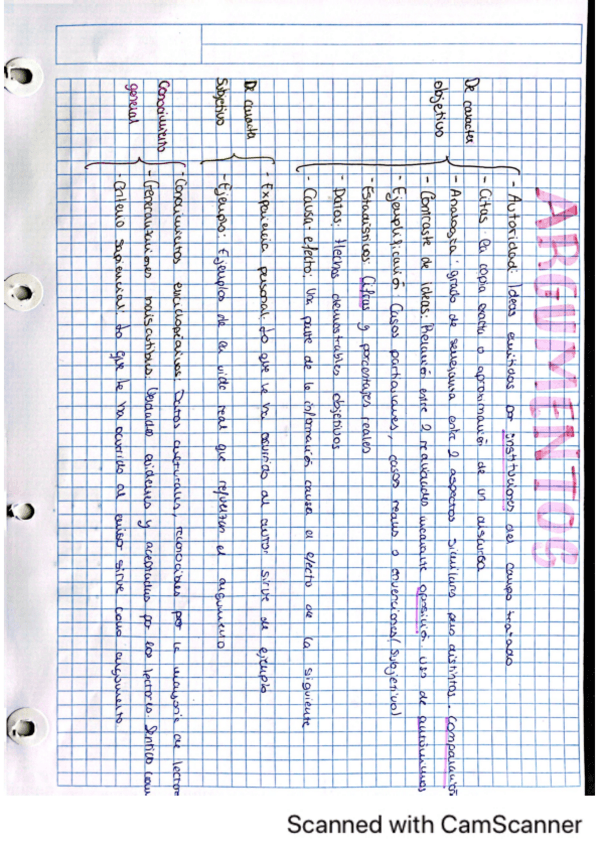 ARGUMENTOS
De caracter objetivo
- Autoridad: Ideas emitidas por instituciones del campo tratado
- Citas: la copia exacta o aproximación de un discurso
- Analogía: grado de semejanza entre 2 aspectos similares pero distintos. comparación
- Contraste de ideas: Relación entre 2 realidades mediante oposición, uso de antónimos
- Ejemplificación: Casos particulares, casos reales o invenciones (subjetivo)
- Estadísticas: Cifras y porcentajes reales
- Datos: Hechos demostrables objetivos
- Causa-efecto: Una parte de la información causa el efecto de la siguiente
De caracter subjetivo
- Experiencia personal: Lo que le ha ocurrido al autor sirve de ejemplo
- Ejemplo: Ejemplos de la vida real que refuerzan el argumento
Conocimiento general
- Conocimientos enciclopédicos: Datos culturales, reconocibles por la mayoría de lectores
- Generalizaciones indiscutibles: Verdades evidentes y aceptadas por los lectores
- Criterio sapiencial: Lo que le ha ocurrido al emisor sirve como argumento
Scanned with CamScanner